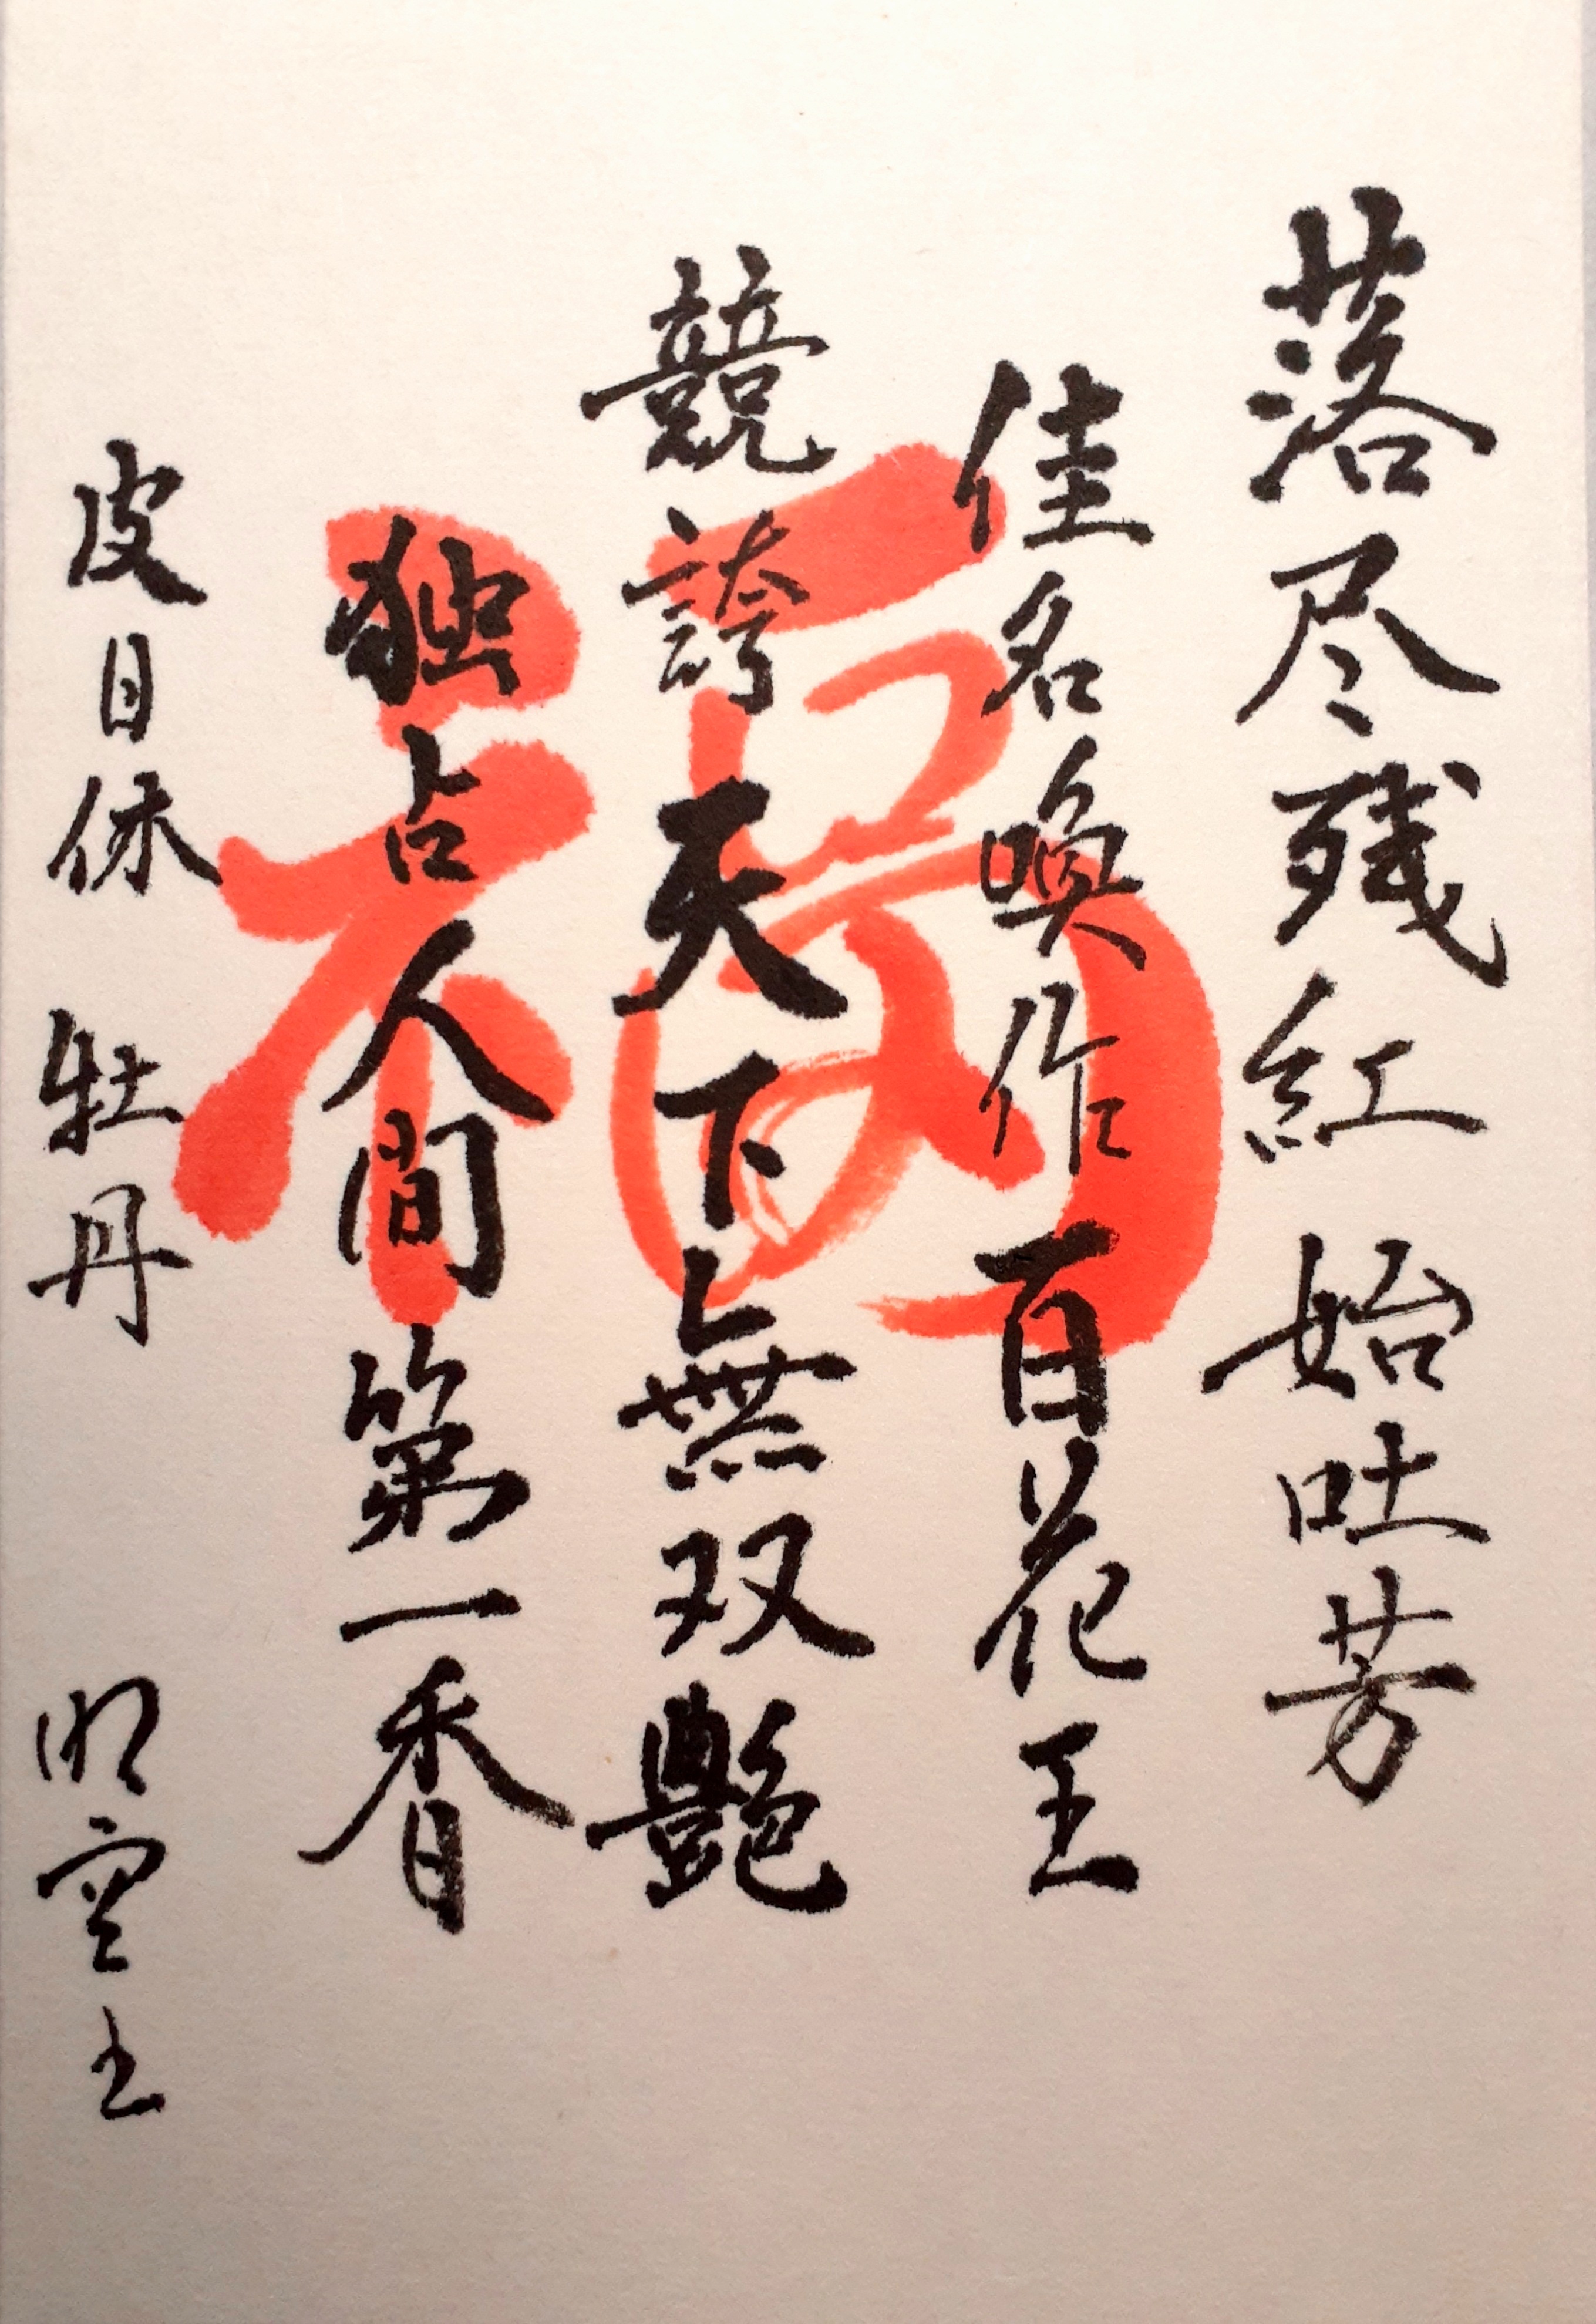 落尽残紅始吐芳
佳名喚作百花王
競誇天下無双艶
独占人間第一香
皮日休 牡丹